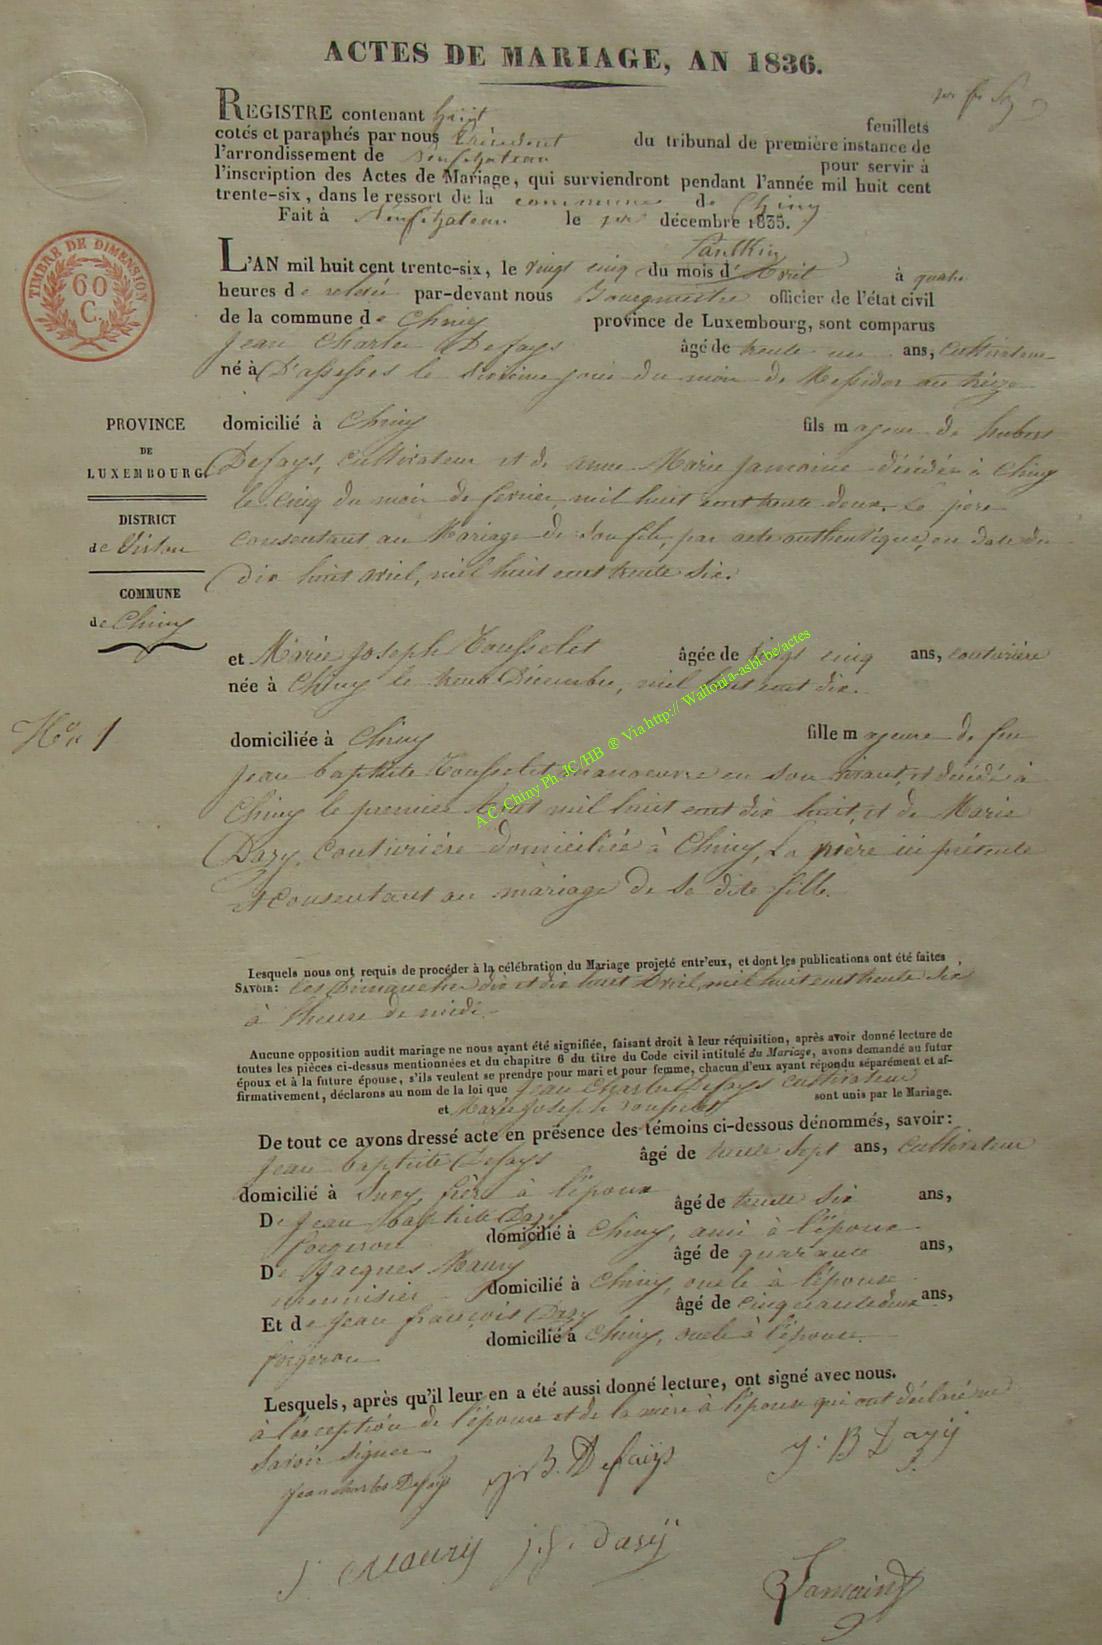 ACTES DE MARIAGE, AN 1836.
REGISTRE contenant huit feuillets
cotés et paraphés par nous Président du tribunal de première instance de
l'arrondissement de Neufchateau pour servir à
l'inscription des Actes de Mariage, qui surviendront pendant l'année mil huit cent
trente-six, dans le ressort de la commune de Chiny
Fait à Neufchateau le 1er décembre 1835.
TIMBRE DE DIMENSION
60
C.
L'AN mil huit cent trente-six, le vingt cinq du mois d'Avril à quatre
heures de relevée par-devant nous Bourgmestre officier de l'état civil
de la commune de Chiny province de Luxembourg, sont comparus
Jean Charles Defays âgé de trente un ans, cultivateur
né à D'assesses le sixième jour du mois de Messidor an treize
PROVINCE
DE
LUXEMBOURG.
DISTRICT
de Virton
COMMUNE
de Chiny
domicilié à Chiny fils majeur de hubert
Defays, cultivateur et de anne Marie Jamoine décédée à Chiny
le cinq du mois de fevrier mil huit cent trente deux. Le père
consentant au Mariage de son fils, par acte authentique, en date du
dix huit avril, mil huit cent trente six.
et Marie Joseph Tousselet âgée de vingt cinq ans, couturière
née à Chiny le trois Décembre, mil huit cent dix.
N° 1
domiciliée à Chiny fille majeure de feu
Jean baptiste Tousselet manoeuvre en son vivant, et décédé à
Chiny le premier Aout mil huit cent dix huit, et de Marie
Dazy, Couturière domiciliée à Chiny, La mère ici présente
et consentant au mariage de Sa dite fille.
A C. Chiny Ph JC/HB ® Via http:// Wallonia-asbl.be/actes
Lesquels nous ont requis de procéder à la célébration du Mariage projeté entr'eux, et dont les publications ont été faites,
SAVOIR: Les Dimanches dix et dix huit Avril, mil huit cent trente six
à l'heure de midi.
Aucune opposition audit mariage ne nous ayant été signifiée, faisant droit à leur réquisition, après avoir donné lecture de
toutes les pièces ci-dessus mentionnées et du chapitre 6 du titre du Code civil intitulé du Mariage, avons demandé au futur
époux et à la future épouse, s'ils veulent se prendre pour mari et pour femme, chacun d'eux ayant répondu séparément et af-
firmativement, déclarons au nom de la loi que Jean Charles Defays cultivateur
et Marie Joseph Tousselet sont unis par le Mariage.
De tout ce avons dressé acte en présence des témoins ci-dessous dénommés, savoir:
Jean baptiste Defays âgé de trente sept ans, cultivateur
domicilié à Suxy, frère à l'époux
De Jean baptiste Dazy âgé de trente six ans,
forgeron domicilié à Chiny, ami à l'époux
De Jacques Maury âgé de quarante ans,
menuisier domicilié à Chiny, oncle à l'épouse
Et de Jean françois Dazy âgé de cinquante deux ans,
forgeron domicilié à Chiny, oncle à l'épouse.
Lesquels, après qu'il leur en a été aussi donné lecture, ont signé avec nous.
à l'exception de l'épouse et de la mère à l'épouse qui ont déclaré ne
savoir signer.
Jean charles Defays J. B. Defaÿs J: B Dazÿ
J Maury j. f. Dasÿ